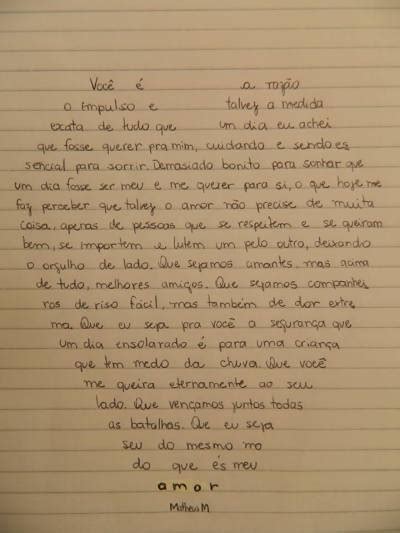 Você é a razão
o impulso e talvez a medida
exata de tudo que um dia eu achei
que fosse querer pra mim, cuidando e sendo es
sencial para sorrir. Demasiado bonito para sonhar que
um dia fosse ser meu e me querer para si, o que hoje me
faz perceber que talvez o amor não precise de muita
coisa, apenas de pessoas que se respeitem e se queiram
bem, se importem e lutem um pelo outro, deixando
o orgulho de lado. Que sejamos amantes, mas acima
de tudo, melhores amigos. Que sejamos companhei
ros de riso fácil, mas também de dor extre
ma. Que eu seja pra você a segurança que
um dia ensolarado é para uma criança
que tem medo da chuva. Que você
me queira eternamente ao seu
lado. Que vençamos juntos todas
as batalhas. Que eu seja
seu do mesmo mo
do que és meu
amor
Matheus M.